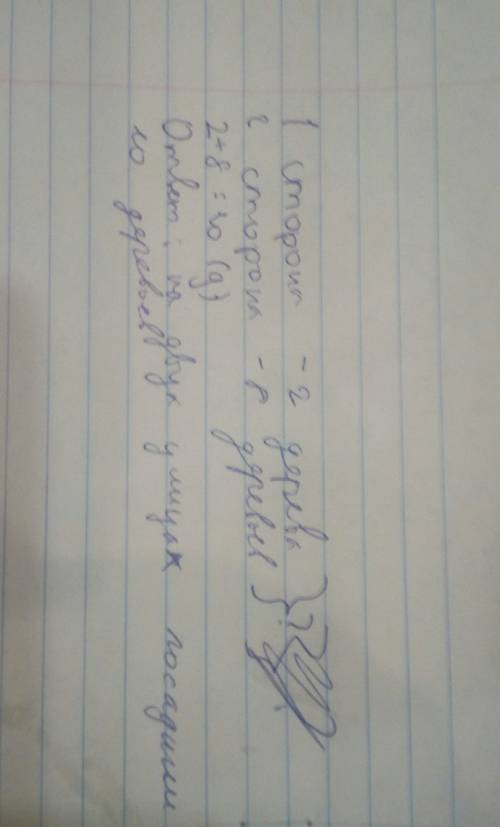 1 сторона - 2 дерева } ?
2 сторона - 8 деревьев
2+8=10(д)
Ответ: на двух улицах посадили
10 деревьев